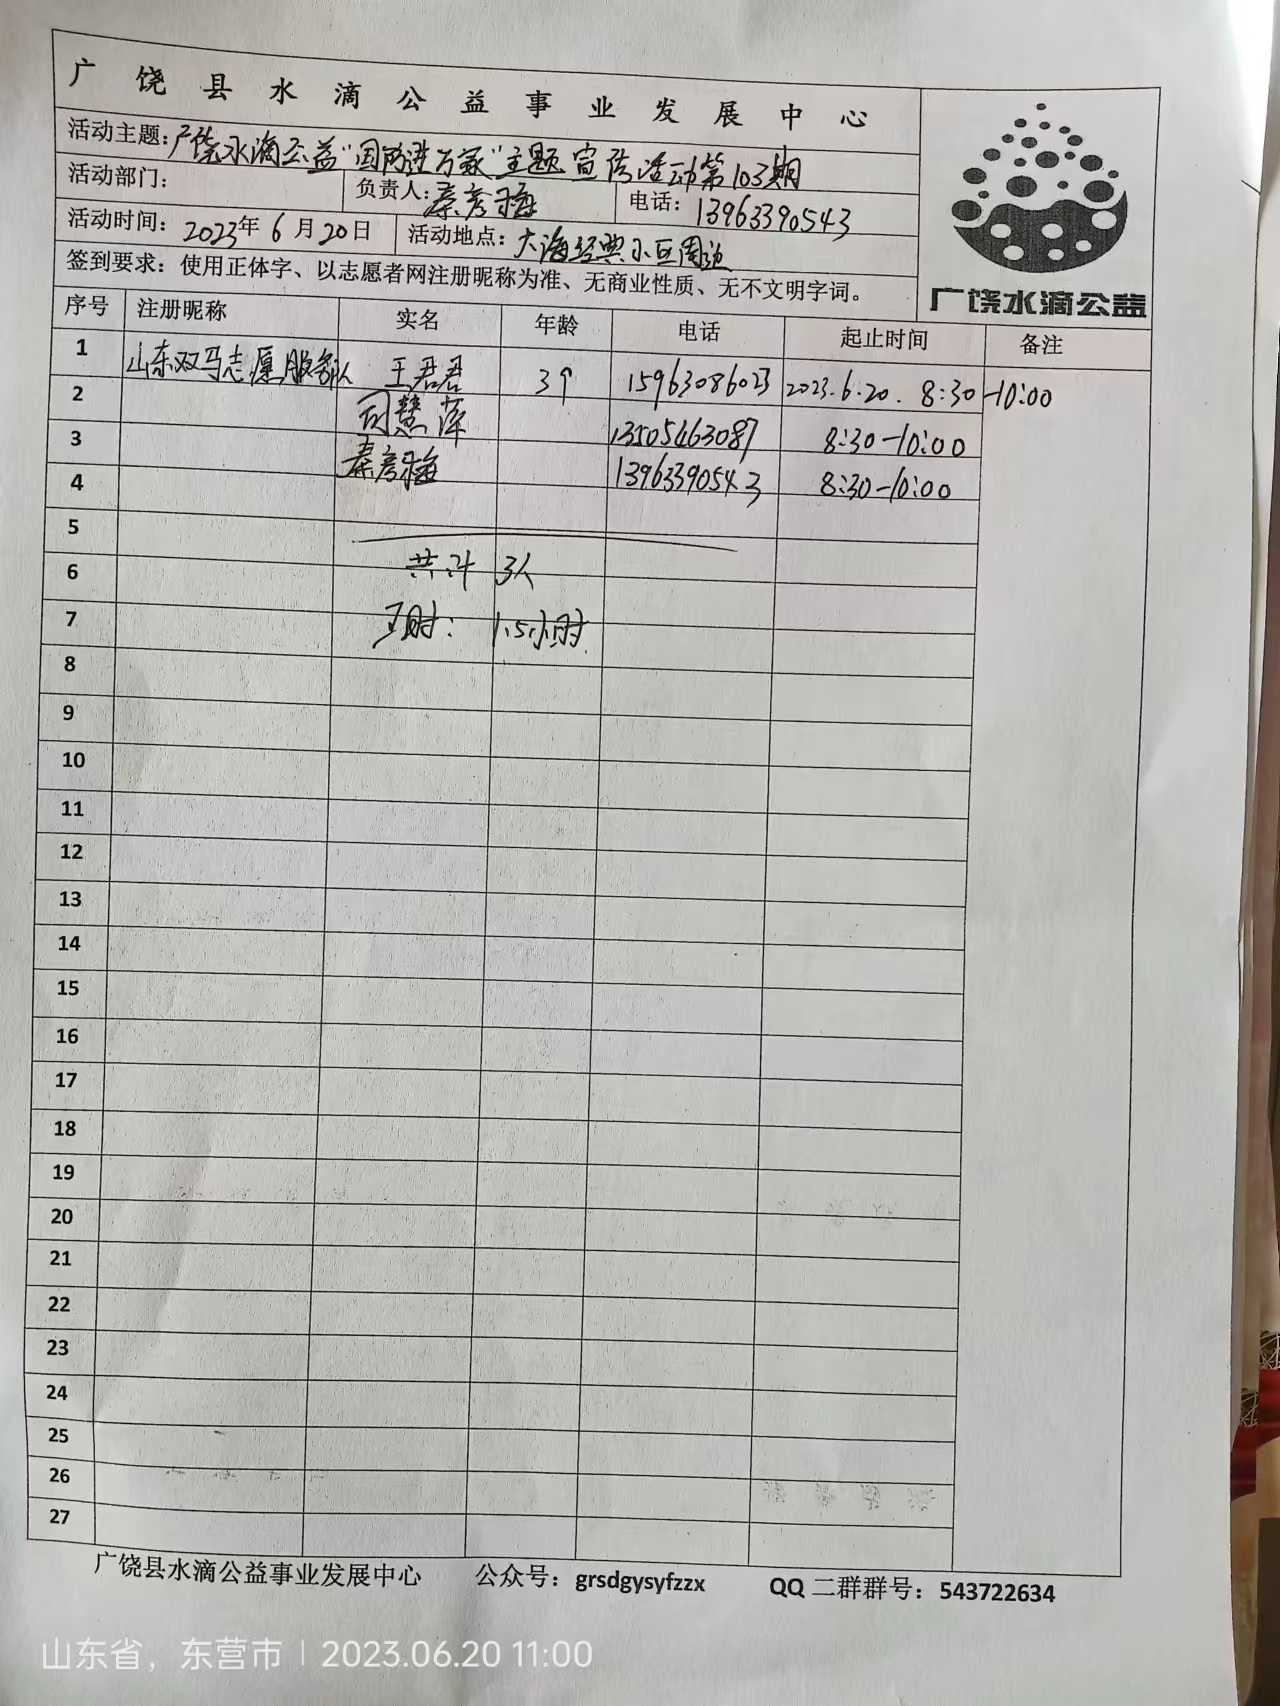 广饶县水滴公益事业发展中心
活动主题：广饶水滴公益“国防进万家”主题宣传活动第103期
活动部门： 负责人：秦彦梅 电话：13963390543
活动时间：2023年6月20日 活动地点：大海经典小区周边
签到要求：使用正体字、以志愿者网注册昵称为准、无商业性质、无不文明字词。
广饶水滴公益
序号 注册昵称 实名 年龄 电话 起止时间 备注
1 山东双马志愿服务队 王君君 39 15963086023 2023.6.20. 8:30-10:00
2 司慧萍 13505463087 8:30-10:00
3 秦彦梅 13963390543 8:30-10:00
4
5
6 共计 3人
7 工时： 1.5小时
8
9
10
11
12
13
14
15
16
17
18
19
20
21
22
23
24
25
26
27
广饶县水滴公益事业发展中心 公众号：grsdgysyfzzx QQ二群群号：543722634
山东省，东营市 | 2023.06.20 11:00